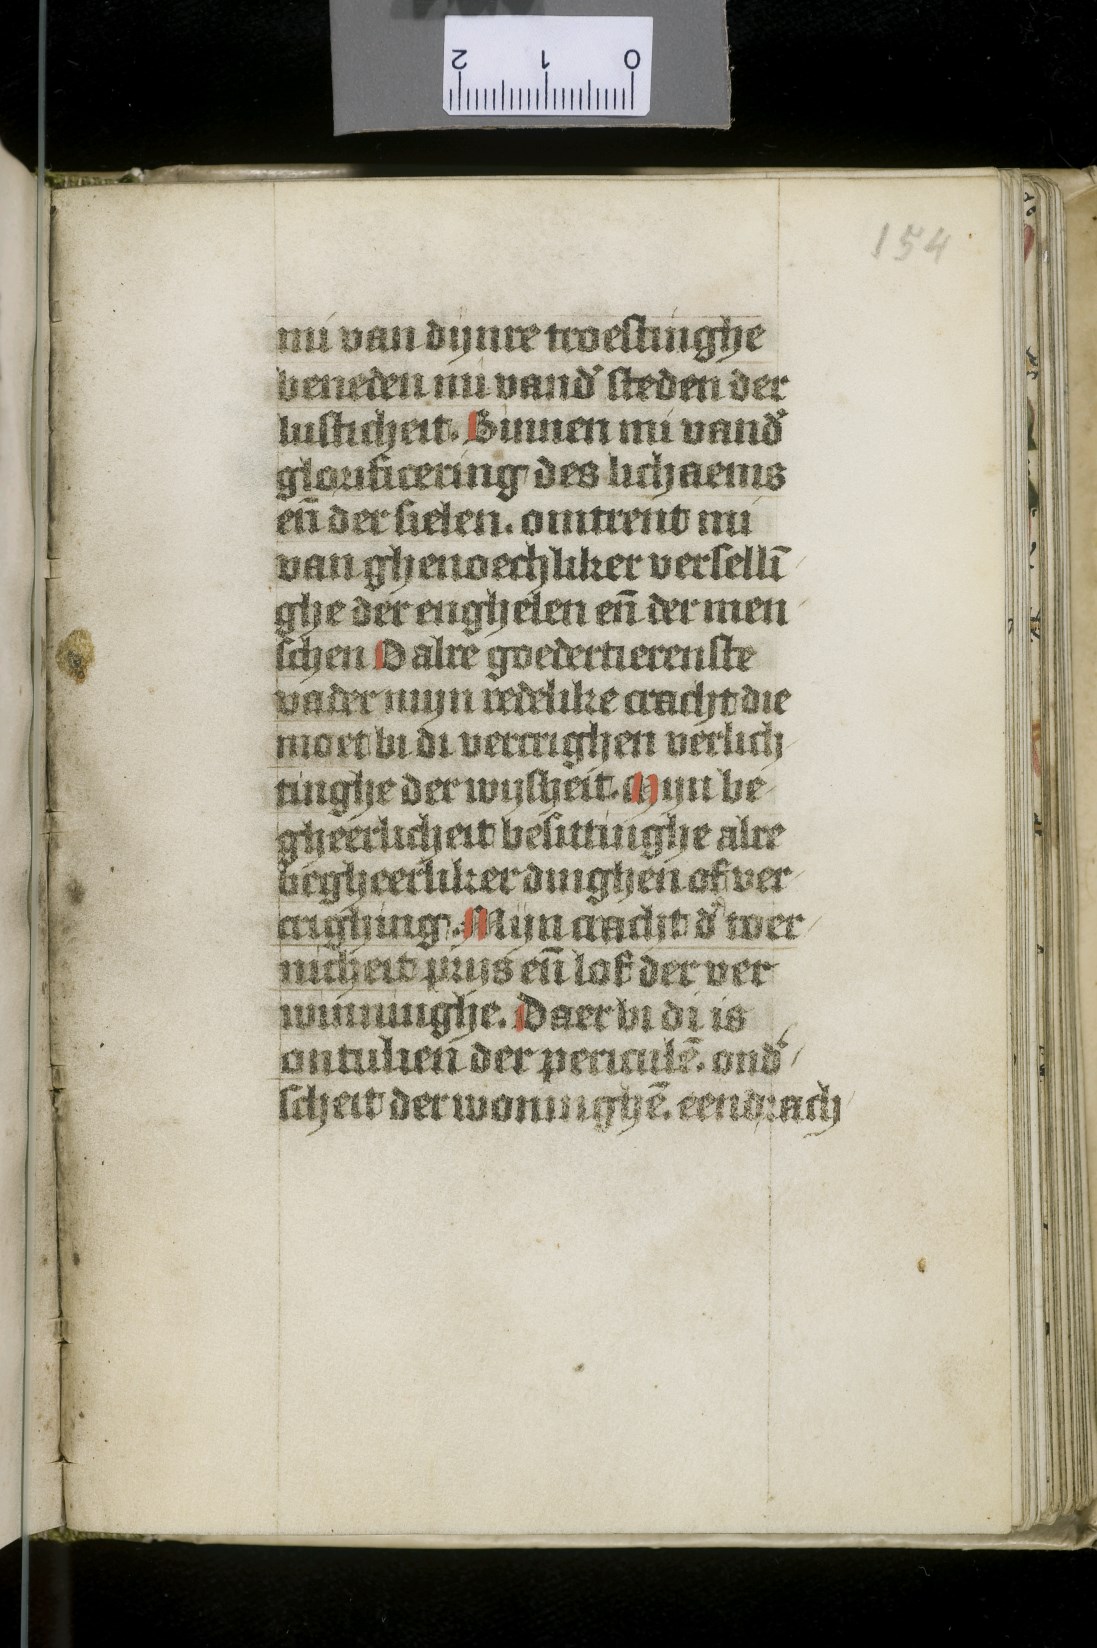 2 1 0
154
mi van dijnre troestinghe
beneden mi vand' steden der
lusticheit. Binnen mi vand'
glorificering des lichaems
eñ der sielen. omtrent mi
van ghenoechliker versellī
ghe der enghelen eñ der men
schen O alre goedertierenste
vader mijn redelike cracht die
moet bi di vercrighen verlich
tinghe der wijsheit. Mijn be
gheerlicheit besittinghe alre
begheerliker dinghen of ver
crighing. Mijn cracht d' toer
nicheit prijs eñ lof der ver
winninghe. Daer bi di is
ontulien der periculē. ond'
scheit der woninghē. eendrach